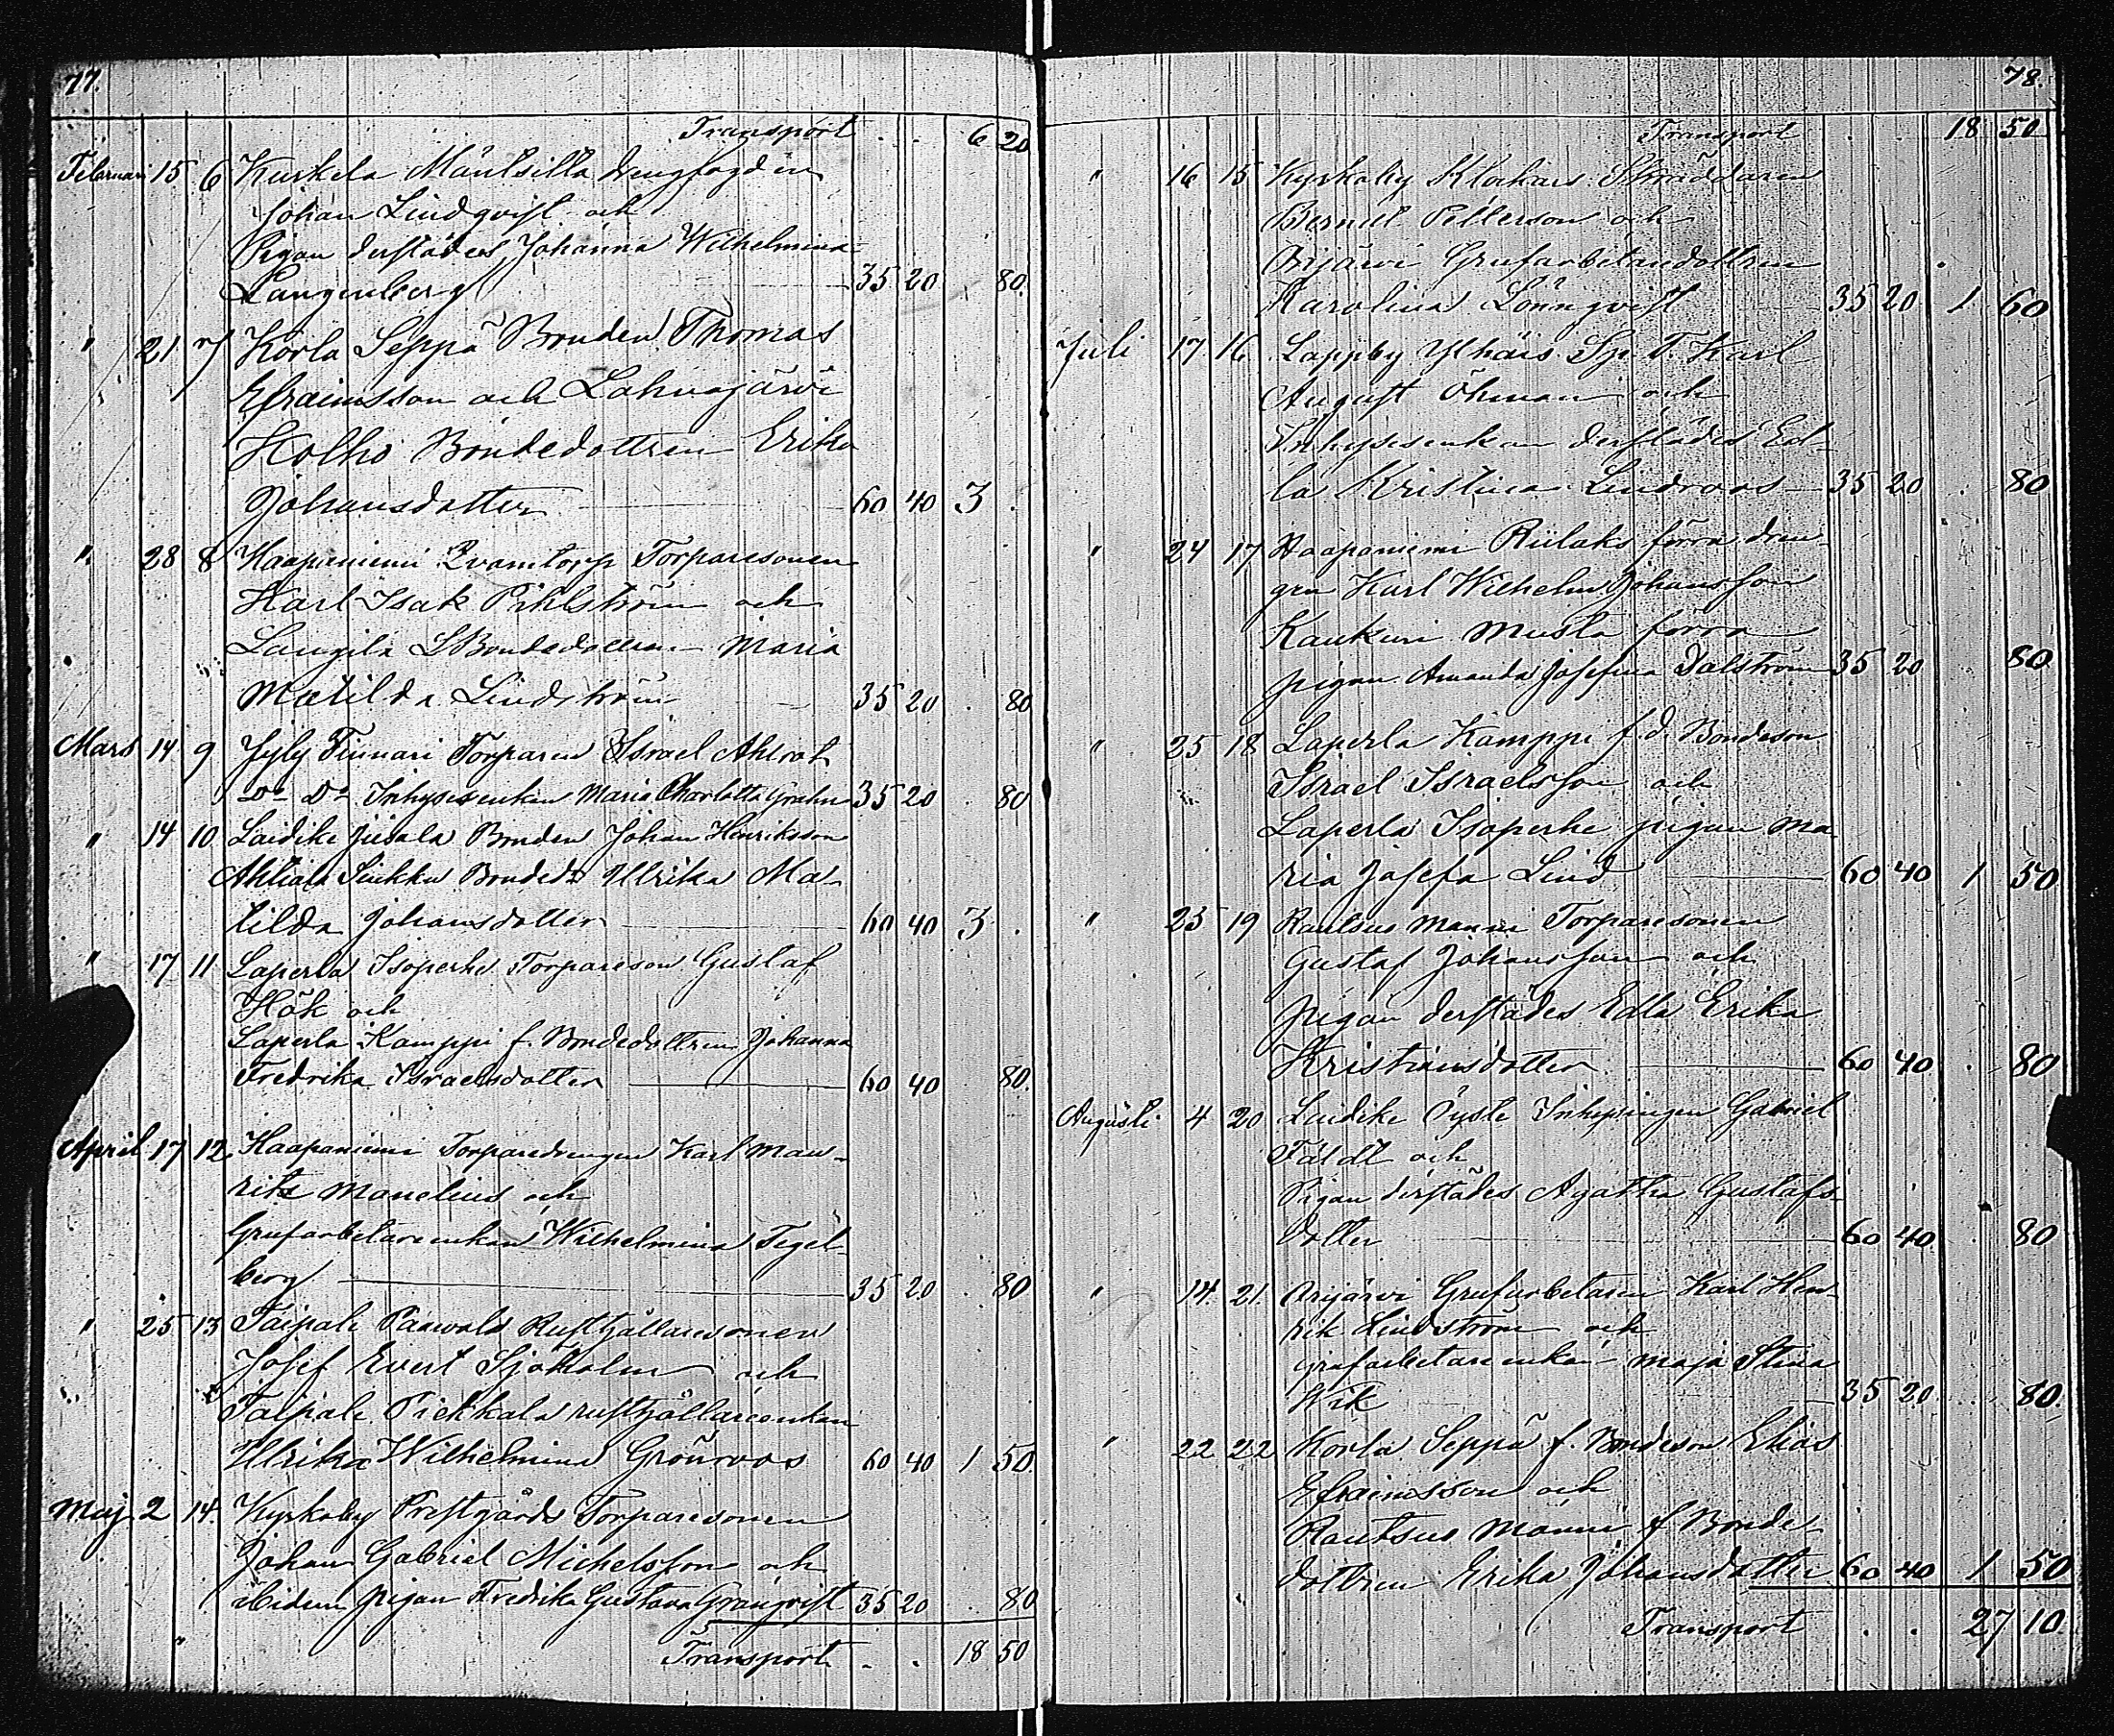 77.
Transport . . 6 20
Februari 15 6 Kurkela Mäntsillä drengfogden
Johan Lindqvist och
Pigan derstädes Johanna Wilhelmina
Langenberg 35 20 . 80.
" 21 7 Korla Seppä Bonden Thomas
Efraimsson och Lahnajärvi
Holho Bondedottren Erika
Johansdotter 60 40 3 .
" 28 8 Haapaniemi Qvarntorp Torparesonen
Karl Isak Pihlström och
Langila Bondedottren Maria
Matilda Lindström 35 20 . 80
Mars 14 9 Jyly Finnari Torparen Israel Ahlrot
Do Do Inhysesenkan Maria Charlotta Grahn 35 20 . 80
" 14 10 Laidike Jusala Bonden Johan Henriksson
Ahtiala Sinkku Bondedr Ulrika Ma-
tilda Johansdotter 60 40 3 .
" 17 11 Laperla Isoperhe Torpareson Gustaf
Hök och
Laperla Kamppi f. Bondedottren Johanna
Fredrika Israelsdotter 60 40 80.
April 17 12 Haapaniemi Torparedrengen Karl Mau-
ritz Manelius och
Grufarbetareenkan Wilhelmina Tegel-
berg 35 20 . 80
" 25 13 Taipale Rusthållaresonen
Josef Evert Sjöholm och
Taipale Piekkala rusthållareenkan
Ulrika Wilhelmina Grönroos 60 40 1 50.
Maj 2 14. Kyrkoby Prestgårds Torparesonen
Johan Gabriel Michelsson och
ibidem pigan Fredrika Gustava Granqvist 35 20 . 80
Transport . . 18 50
78.
Transport . . 18 50
" 16 15 Kyrkoby Klockars Skräddaren
Berndt Petterson och
Orijärvi Grufarbetaredottren
Karolina Lönnqvist 35 20 1 60
Juli 17 16 Lappby Ylhäis Sp. T. Karl
August Öhman och
Inhysesenkan derstädes Ed-
la Kristina Lindroos 35 20 . 80
" 24 17 Haapaniemi Riilaks förra dren-
gen Karl Wilhelm Johansson
Kaukuri Musta förra
pigan Amanda Josefina Dalström 35 20 80
" 25 18 Laperla Kamppi f.d. Bondeson
Israel Israelsson och
Laperla Isoperhe pigan Ma-
ria Josefa Lind 60 40 1 50
" 25 19 Rautsuo Manni Torparesonen
Gustaf Johansson och
Pigan derstädes Edla Erika
Kristiansdotter 60 40 . 80
Augusti 4 20 Laidike Inhysingen Gabriel
Fäldt och
Pigan derstädes Agatha Gustafs-
dotter 60 40 . 80
" 14. 21. Orijärvi Grufarbetaren Karl Hen-
rik Lindström och
grufarbetareenkan Maja Stina
Wik 35 20 . 80.
" 22 22 Korla Seppä f. Bondeson Elias
Efraimsson och
Rautsuo Manni f Bonde-
dottren Erika Johansdotter 60 40 1 50
Transport . . 27 10.